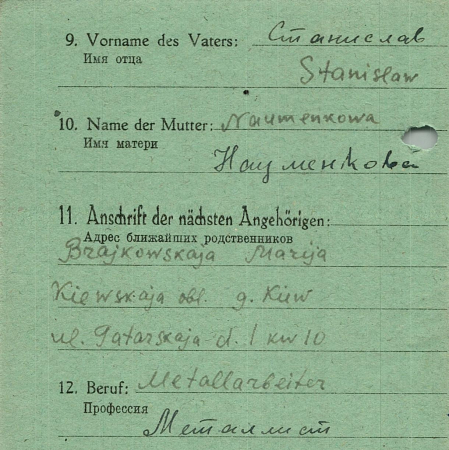 9. Vorname des Vaters: Станислав
Имя отца
Stanisław
10. Name der Mutter: Naumenkowa
Имя матери
Науменкова
11. Anschrift der nächsten Angehörigen:
Адрес ближайших родственников
Brajkowskaja Marija
Kiewskaja obl. g. Kiew
ul. Tatarskaja d. 1 kw 10
12. Beruf: Metallarbeiter
Профессия
Металлист